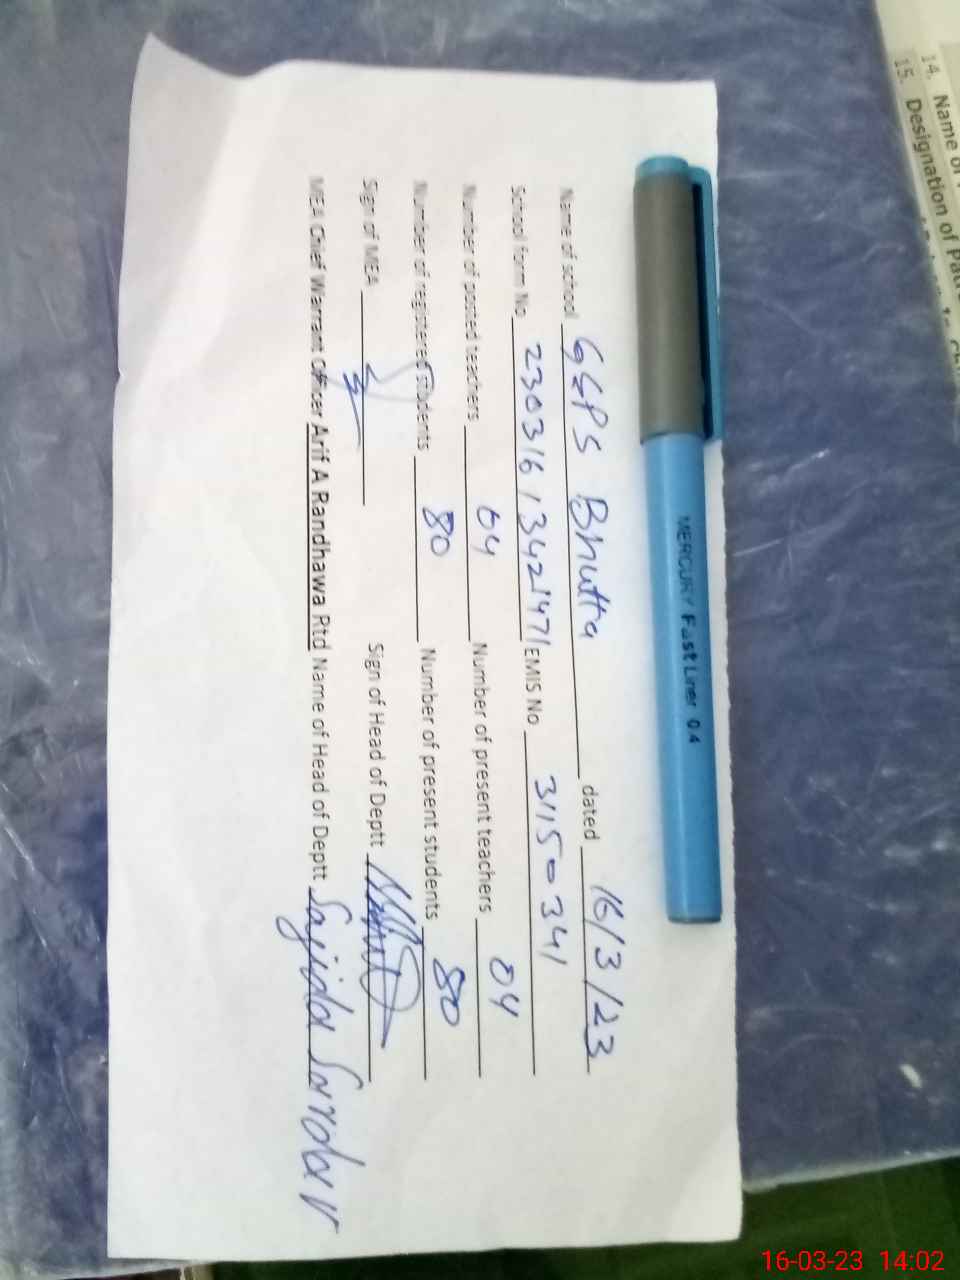 14. Name of
15. Designation of Patr
MERCURY Fast Liner 0.4
Name of school GGPS Bhutta dated 16/3/23
School form No 23031613421471 EMIS No 31150341
Number of posted teachers 04 Number of present teachers 04
Number of registered students 80 Number of present students 80
Sign of MEA Sign of Head of Deptt
MEA Chief Warrant Officer Arif A Randhawa Rtd Name of Head of Deptt Sajida Sardar
16-03-23 14:02